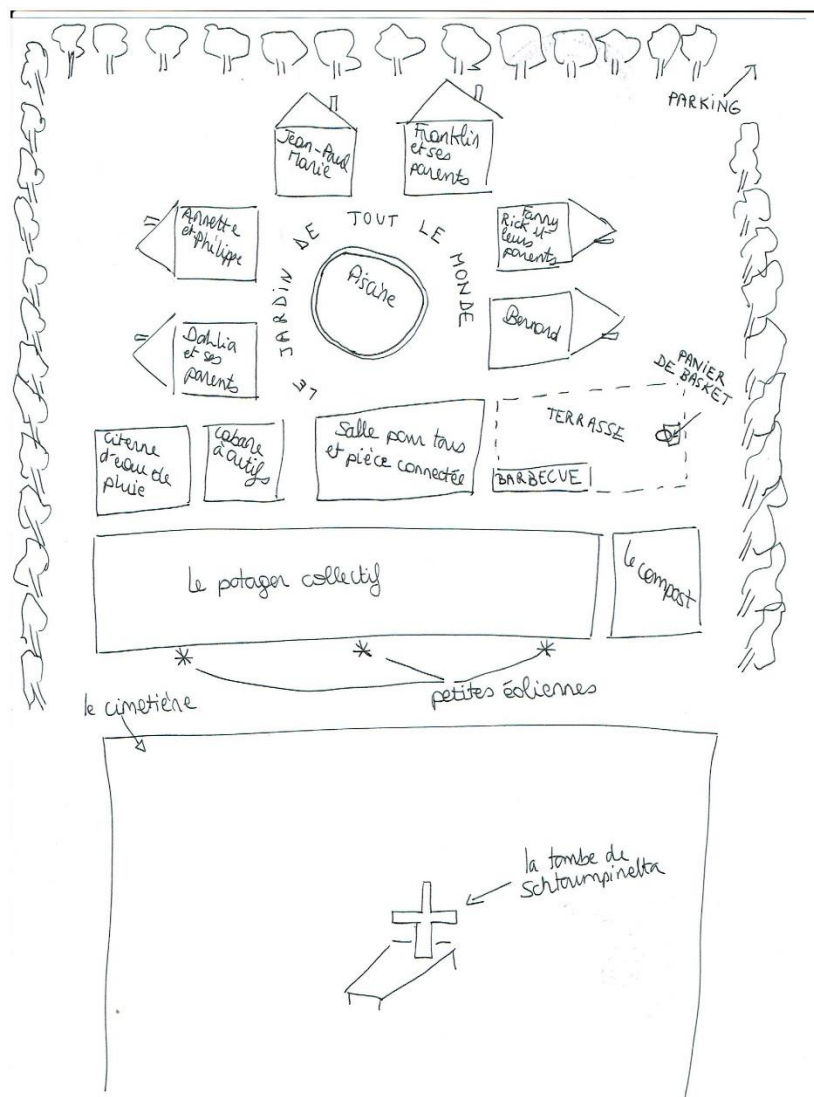 PARKING
Jean-Paul
Marie
Franklin
et ses
parents
Annette
et Philippe
Fanny
Rick et
leurs
parents
LE JARDIN DE TOUT LE MONDE
Piscine
Dahlia
et ses
parents
Bernard
PANIER
DE BASKET
TERRASSE
Citerne
d'eau de
pluie
Cabane
à outils
Salle pour tous
et pièce connectée
BARBECUE
le potager collectif
le compost
petites éoliennes
le cimetière
la tombe de
Schtroumpinelta